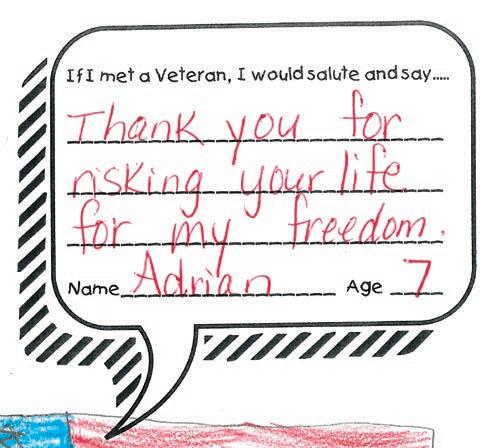 If I met a Veteran, I would salute and say.....
Thank you for
risking your life
for my freedom.
Name Adrian Age 7